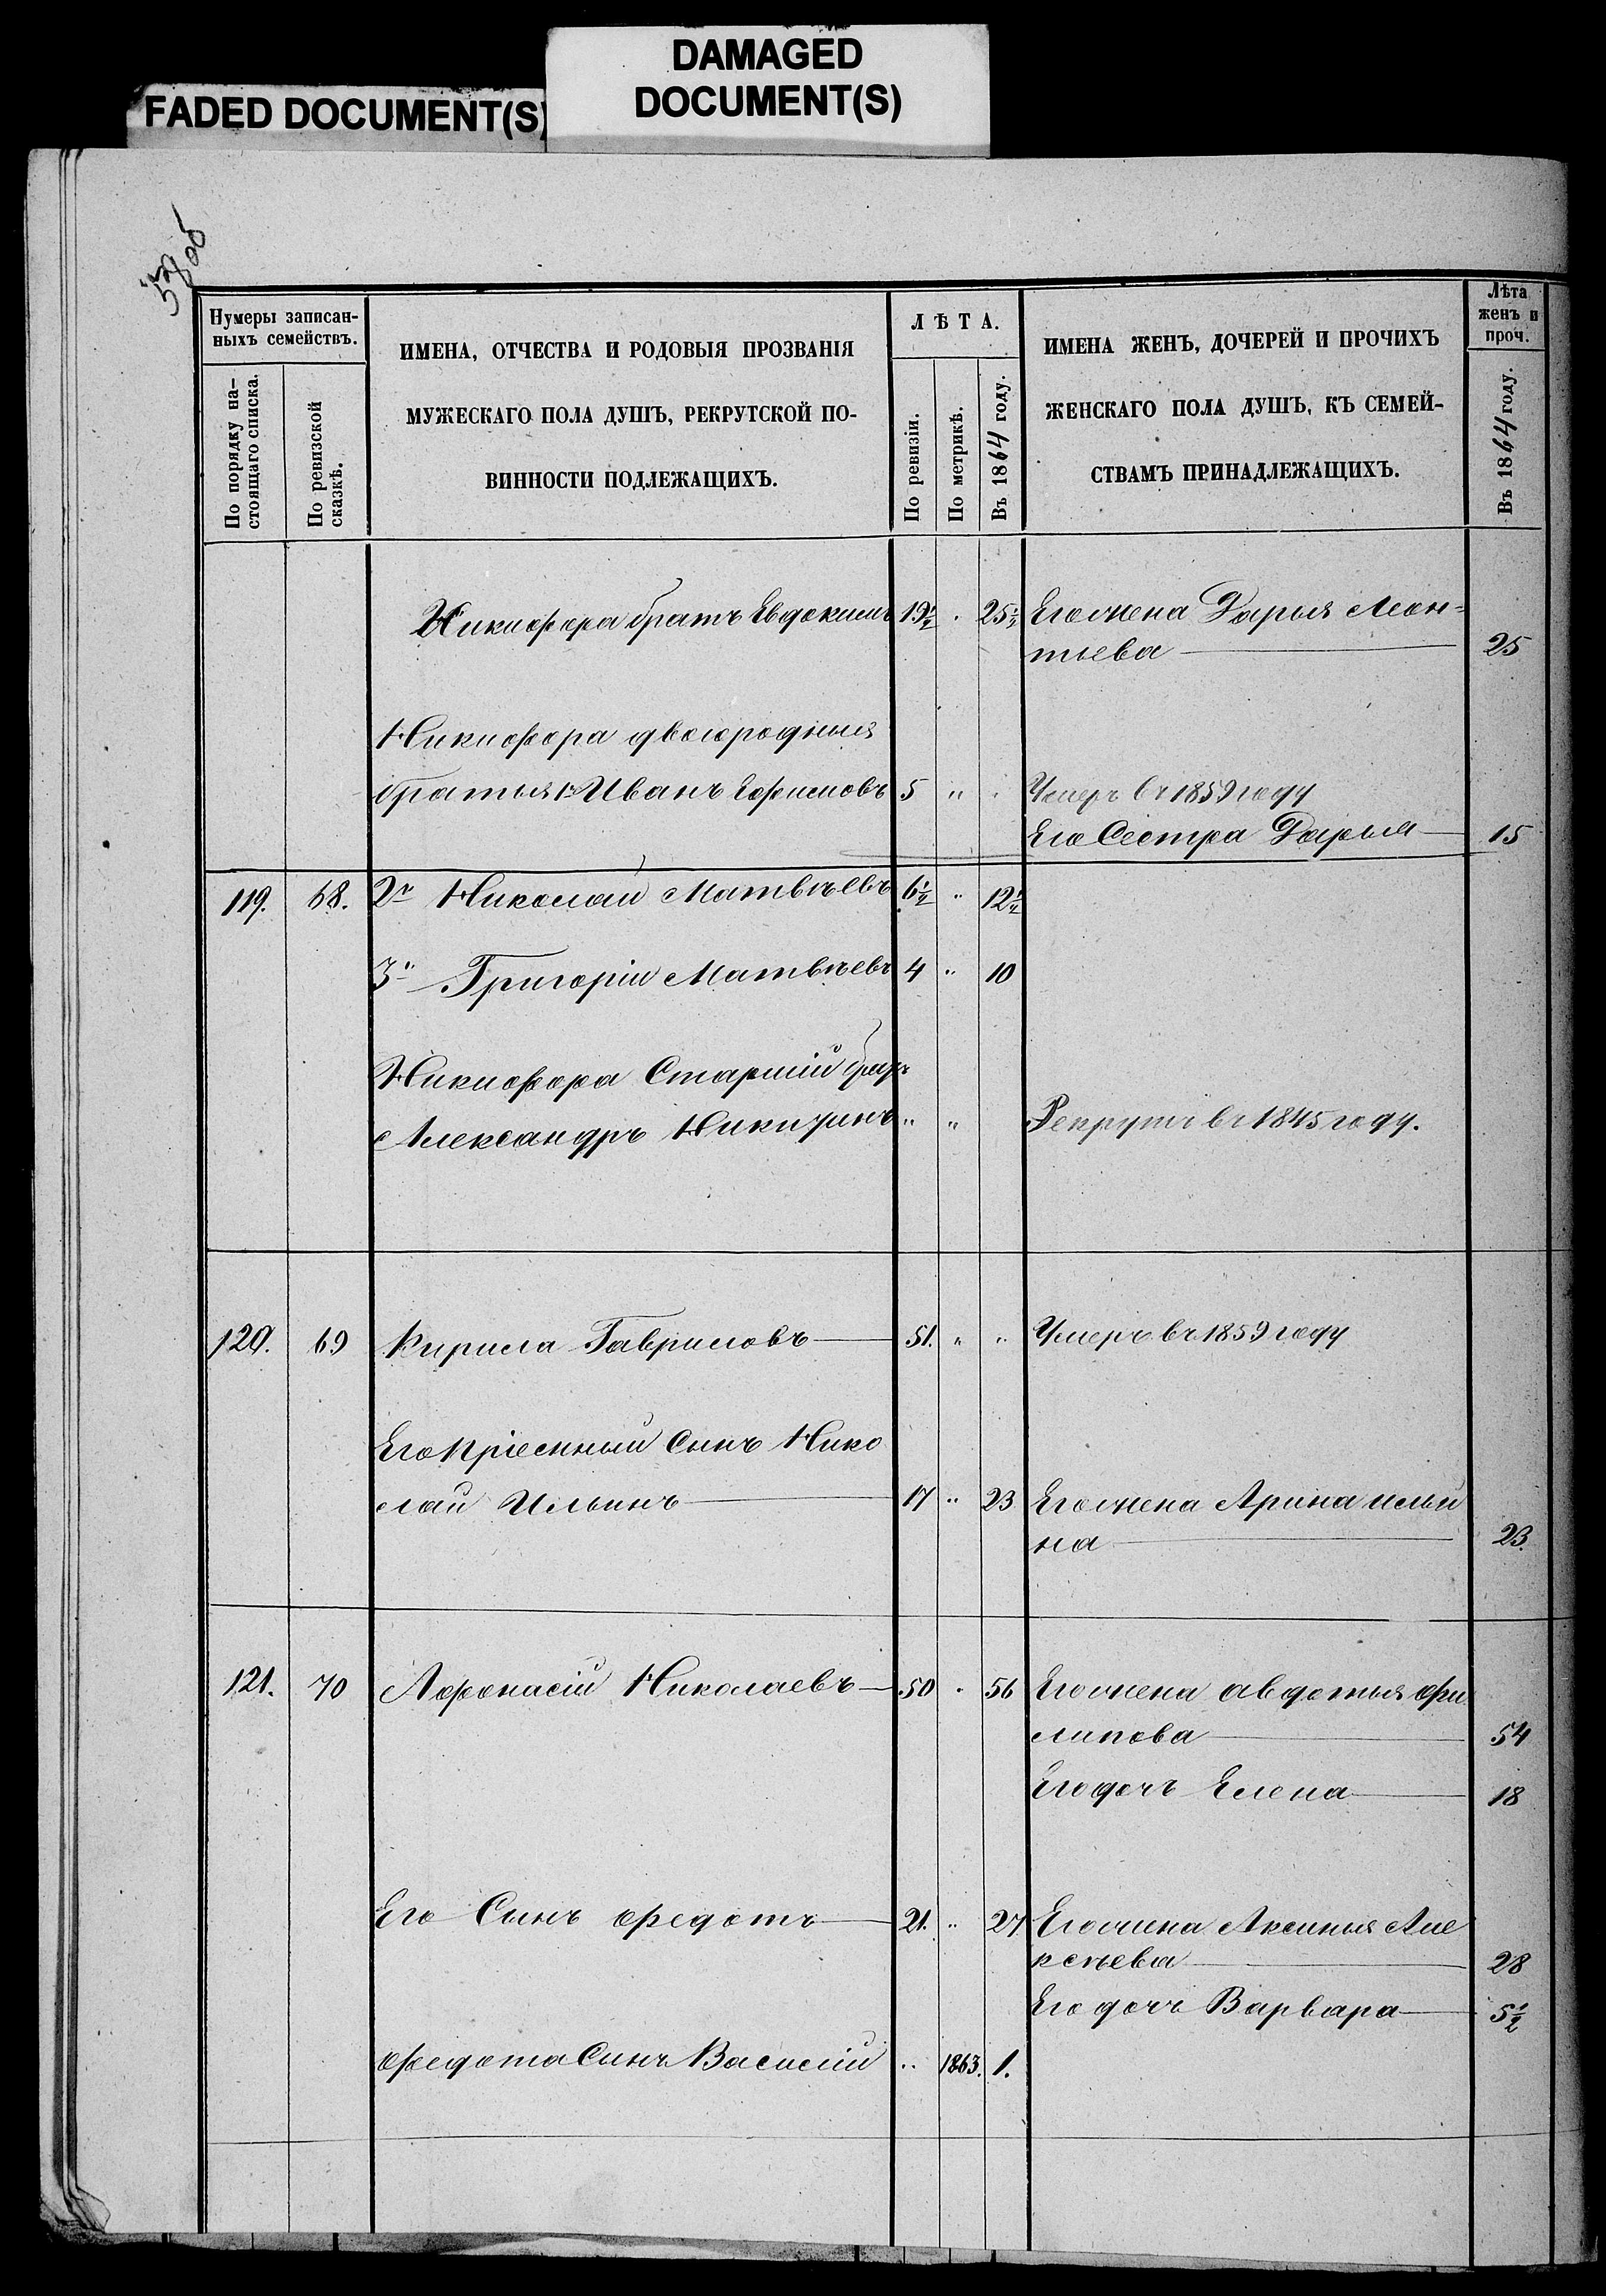 FADED DOCUMENT(S)
DAMAGED
DOCUMENT(S)
Нумеры записан-
ныхъ семействъ.
По порядку на-
стоящаго списка.
По ревизской
сказкѣ.
ИМЕНА, ОТЧЕСТВА И РОДОВЫЯ ПРОЗВАНІЯ
МУЖЕСКАГО ПОЛА ДУШЪ, РЕКРУТСКОЙ ПО-
ВИННОСТИ ПОДЛЕЖАЩИХЪ.
ЛѢТА.
По ревизіи.
По метрикѣ.
Въ 1864 году.
ИМЕНА ЖЕНЪ, ДОЧЕРЕЙ И ПРОЧИХЪ
ЖЕНСКАГО ПОЛА ДУШЪ, КЪ СЕМЕЙ-
СТВАМЪ ПРИНАДЛЕЖАЩИХЪ.
Лѣта
женъ и
проч.
Въ 1864 году.
Никифора братъ Евдокимъ 19½ " 25½ Его жена Дарья Леон-
тьева 25
Никифора двоюродныя
братья 1й Иванъ Ефимовъ 5 " " Умеръ въ 1859 году
Его Сестра Дарья 15
119. 68. 2й Николай Матвѣевъ 6½ " 12½
3й Григорій Матвѣевъ 4 " 10
Никифора Старшій братъ
Александръ Никитинъ " " Рекрутъ въ 1845 году.
120. 69 Кирила Гавриловъ 51. " " Умеръ въ 1859 году
Его Пріемный Сынъ Нико
лай Ильинъ 17 " 23 Его жена Арина Ильи
на 23.
121. 70 Афонасій Николаевъ 50 " 56 Его жена Авдотья Фи
липова 54
Его дочь Елена 18
Его Сынъ Федотъ 21. " 27 Его жена Аксинья Але
ксѣева 28
Его дочь Варвара 5½
Федота Сынъ Василій " 1863. 1.